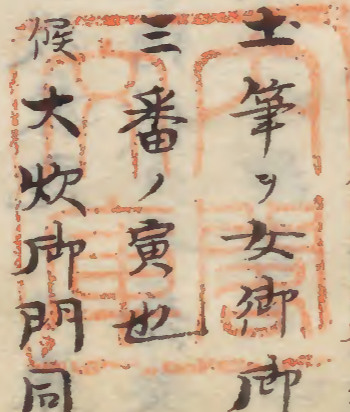 土筆ヲ女御御
三番ノ寅也
候大炊御門同